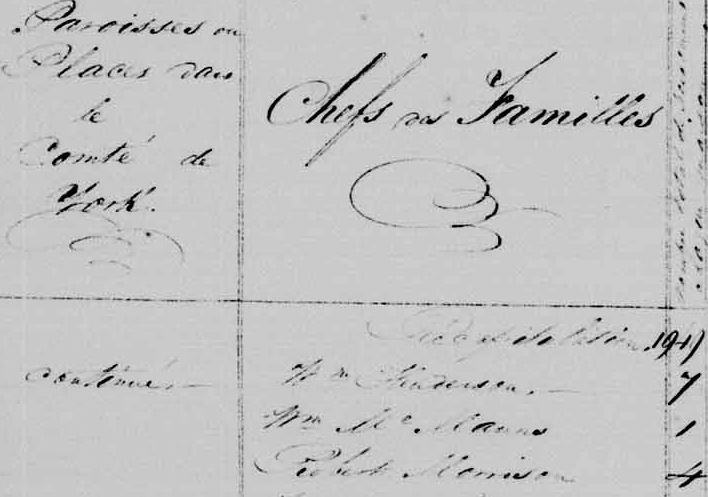 Paroisses ou
Places dans
le
Comté de
York.
Chefs des Familles
Récapitulation
continué
7
Wm Mc Manus
1
Robert Morrison
4